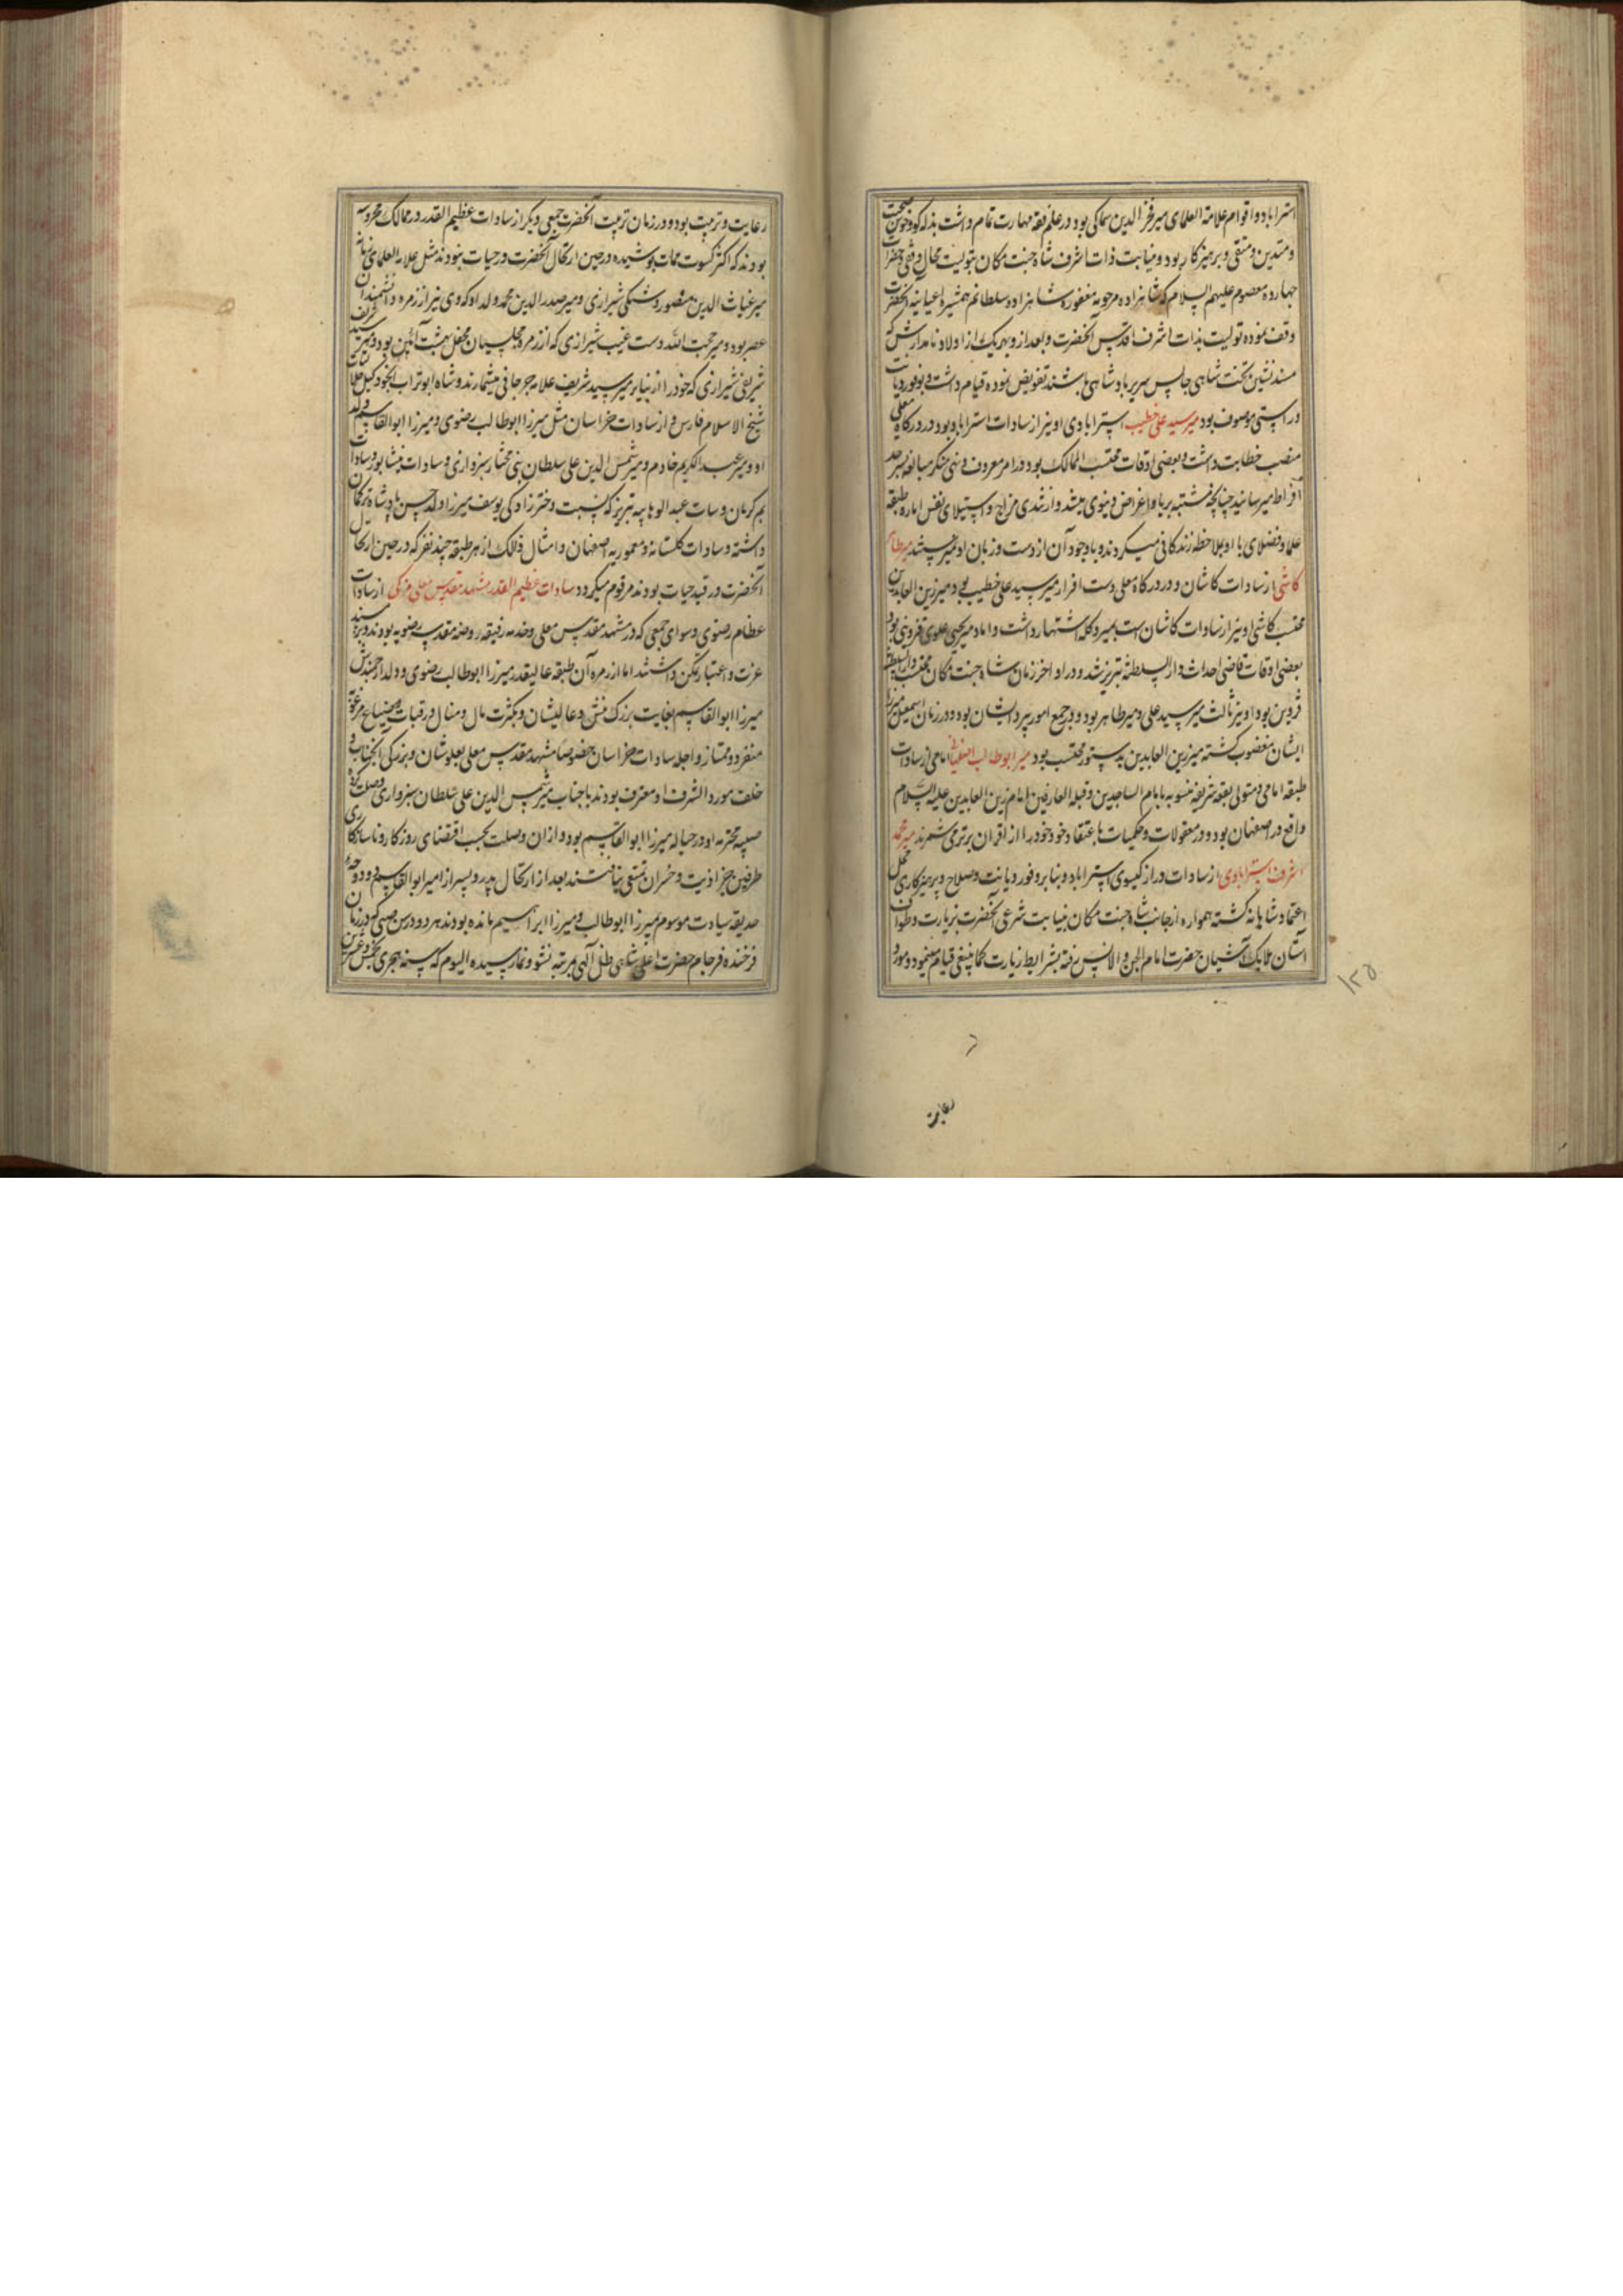 استراباد و اقوام علامة العلمای میر فخر الدین سماکی بود در علم فقه مهارت تمام داشت بذله کو و خوش صحبت
و متدین و متقی و پرهیزکار بود و نیابت ذات اشرف شاه جنت مکان بتولیت محال وقفی حضرات
چهارده معصوم علیهم السلام که شاهزاده مرحومه مغفوره شاهزاده سلطانم همشیره اعیانیه آنحضرت
وقف نموده تولیت بذات اشرف اقدس آنحضرت و بعد از و بهر یک از اولاد نامدارش که
مسند نشین تخت شاهی و جالس سریر پادشاهی باشند تفویض نموده قیام داشت و بوفور دیانت
و راستی موصوف بود میر سید علی خطیب استرابادی او نیز از سادات استراباد بود در درکاه معلی
منصب خطابت داشت و بعضی اوقات محتسب الممالک بود در امر معروف و نهی منکر مبالغه بسرحد
افراط میرسانید چنانچه مشتبه بریا و اغراض دنیوی میشد و از تندی مزاج و استیلای نفس اماره طبقه
علما و فضلای با او بملاحظه زندکانی میکردند و با وجود آن از دست و زبان او میر طاهر
کاشی از سادات کاشان و در درکاه معلی دست افزار میر سید علی خطیب بود میر زین العابدین
محتسب کاشی او نیز از سادات کاشان است بمیر وکله اشتهار داشت داماد میر یحیی علوی قزوینی بود
بعضی اوقات قاضی احداث دار السلطنه تبریز شد و در اواخر زمان شاه جنت مکان محتسب دار السلطنه
قزوین بود او نیز ثالث میر سید علی و میر طاهر بود و در جمیع امور پیرو ایشان بود و در زمان اسمعیل میرزا
ایشان مغضوب کشته میر زین العابدین بدستور محتسب بود میر ابوطالب اصفهانی امامی از سادات
طبقه امامی و متولی بقعه شریفه منسوبه بامام الساجدین و قبله العارفین امام زین العابدین علیه السلام
واقع در اصفهان بود و در معقولات و حکمیات باعتقاد خود خود را از اقران برتر می شمرند میر محمد
اشرف استرابادی از سادات دراز کیسوی استراباد و بنا بر وفور دیانت و صلاح و پرهیزکاری محل
اعتماد شاهانه کشته همواره از جانب شاه جنت مکان بنیابت شرعی آنحضرت بزیارت و طواف
آستان ملایک آشیان حضرت امام الجن و الانس رفته بشرایط زیارت کما ینبغی قیام مینمود و مورد
رعایت
۱۲۵
رعایت و تربیت بود و در زمان تربیت آنحضرت جمعی دیکر از سادات عظیم القدر در ممالک محروسه
بودند که اکثر کسوت ممات پوشیده در حین ارتحال آنحضرت در حیات نبودند مثل علامه العلمای
میر غیاث الدین منصور دشتکی شیرازی و میر صدر الدین محمد ولد او که وی نیز از زمره دانشمندان
عصر بود و میر محب الله دست غیب شیرازی که از زمره مجلسیان محفل بهشت آئین بود و میر سید شریف
شریفی شیرازی که خود را از نبایر میر سید شریف علامه جرجانی میشمارند و شاه ابوتراب
شیخ الاسلام فارس و از سادات خراسان مثل میرزا ابوطالب رضوی و میرزا ابوالقاسم ولد
او و میر عبد الکریم خادم و میر شمس الدین علی سلطان بنی مختار سبزواری و سادات نیشابور و سادات
بم کرمان و سادات عبد الوهابیه تبریز که نسبت دختر زادکی یوسف میرزا ولد حسن پادشاه ترکمان
داشته و سادات کلستانه و معموریه اصفهان و امثال ذالک از هر طبقه چند نفر که در حین ارتحال
آنحضرت در قید حیات بودند مرقوم میکردد سادات عظیم القدر مشهد مقدس معلی مزکی از سادات
عظام رضوی و موسوی جمعی که در مشهد مقدس معلی و خدمه رفیقه روضه مقدسه رضویه بودند و بر مسند
عزت و اعتبار تمکن داشتند اما از زمره آن طبقه عالیقدر میرزا ابوطالب رضوی و ولد ارجمندش
میرزا ابوالقاسم بغایت بزرک منش و عالیشان و بکثرت مال و منال و رقبات و ضیاع
منفرد و ممتاز و اجله سادات خراسان خصوصا مشهد مقدس معلی بعلو شان و بزرکی آنجناب و
خلف مورد الشرف او معترف بودند با جناب میر شمس الدین علی سلطان سبزواری وصلت کرده
صبیه محترمه او در حباله میرزا ابوالقاسم بود و از ان وصلت بحسب اقتضای روزکار و ناسازکاری
طرفین بجز اذیت و خسران تمتعی نیافتند بعد از ارتحال پدر دو پسر از امیر ابوالقاسم دو دوحه
حدیقه سیادت موسوم بمیرزا ابوطالب و میرزا ابراهیم مانده بودند هر دو در سن صبی که در زمان
فرخنده فرجام حضرت اعلی شاهی ظل آلهی مرتبه نشو و نما رسیده الیوم که سنه هجری بخمس و عشرین